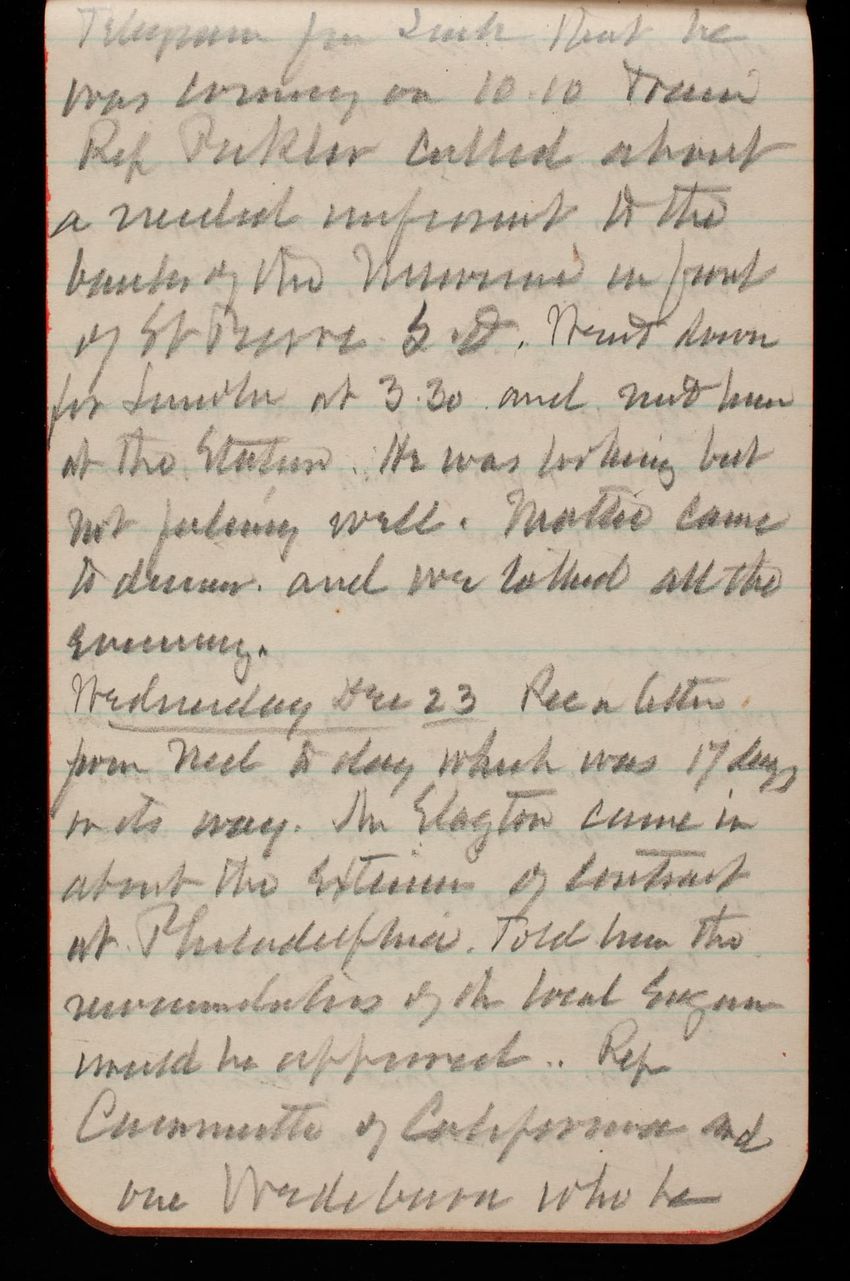 Telegram from that he
was coming on 10.10 train
Rep Pickler called about
a needed improvmt to the
banks of the Missouri in front
of St Pierre S.D. Went down
for Lincoln at 3.30 and met him
at the Station. He was looking but
not feeling well. Mattie came
to dinner. and we talked all the
evening.
Wednesday Dec 23 Rec a letter
from Ned to day which was 17 days
on its way. Mr came in
about the extension of contract
at Philadelphia. Told him the
recommendations of the local
would be approved.. Rep
of California and
one who he